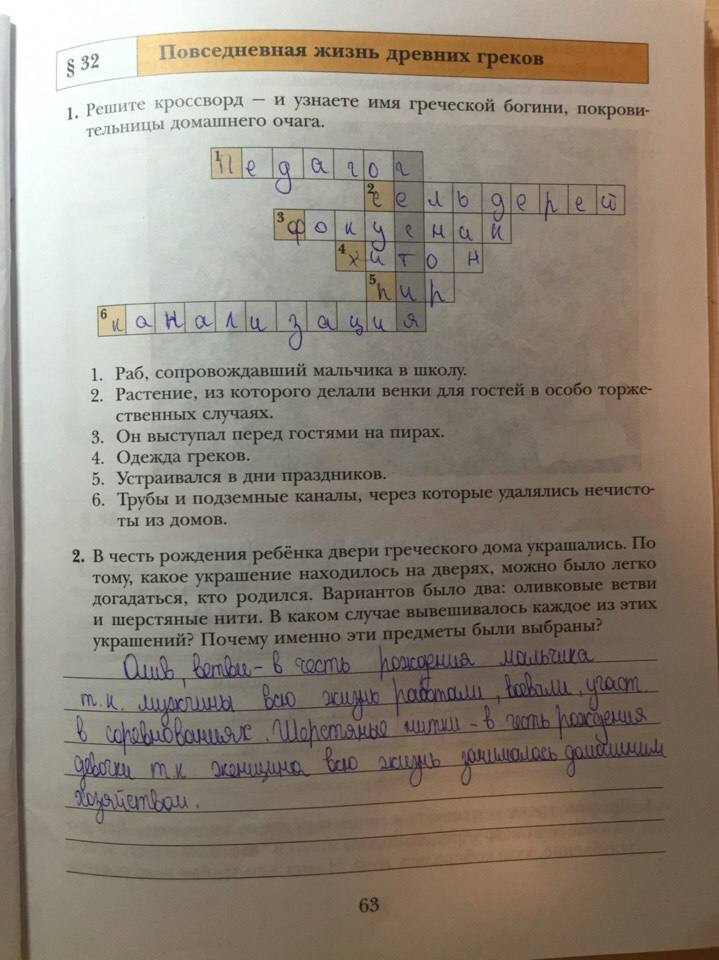 § 32
Повседневная жизнь древних греков
1. Решите кроссворд — и узнаете имя греческой богини, покрови-
тельницы домашнего очага.
1 Педагог
2 сельдерей
3 фокусник
4 хитон
5 пир
6 канализация
1. Раб, сопровождавший мальчика в школу.
2. Растение, из которого делали венки для гостей в особо торже-
ственных случаях.
3. Он выступал перед гостями на пирах.
4. Одежда греков.
5. Устраивался в дни праздников.
6. Трубы и подземные каналы, через которые удалялись нечисто-
ты из домов.
2. В честь рождения ребёнка двери греческого дома украшались. По
тому, какое украшение находилось на дверях, можно было легко
догадаться, кто родился. Вариантов было два: оливковые ветви
и шерстяные нити. В каком случае вывешивалось каждое из этих
украшений? Почему именно эти предметы были выбраны?
Олив, ветви - в честь рождения мальчика
т.к. мужчины всю жизнь работали, воевали, участ.
в соревнованиях. Шерстяные нитки - в честь рождения
девочки т.к женщина всю жизнь занималась домашним
хозяйством.
63